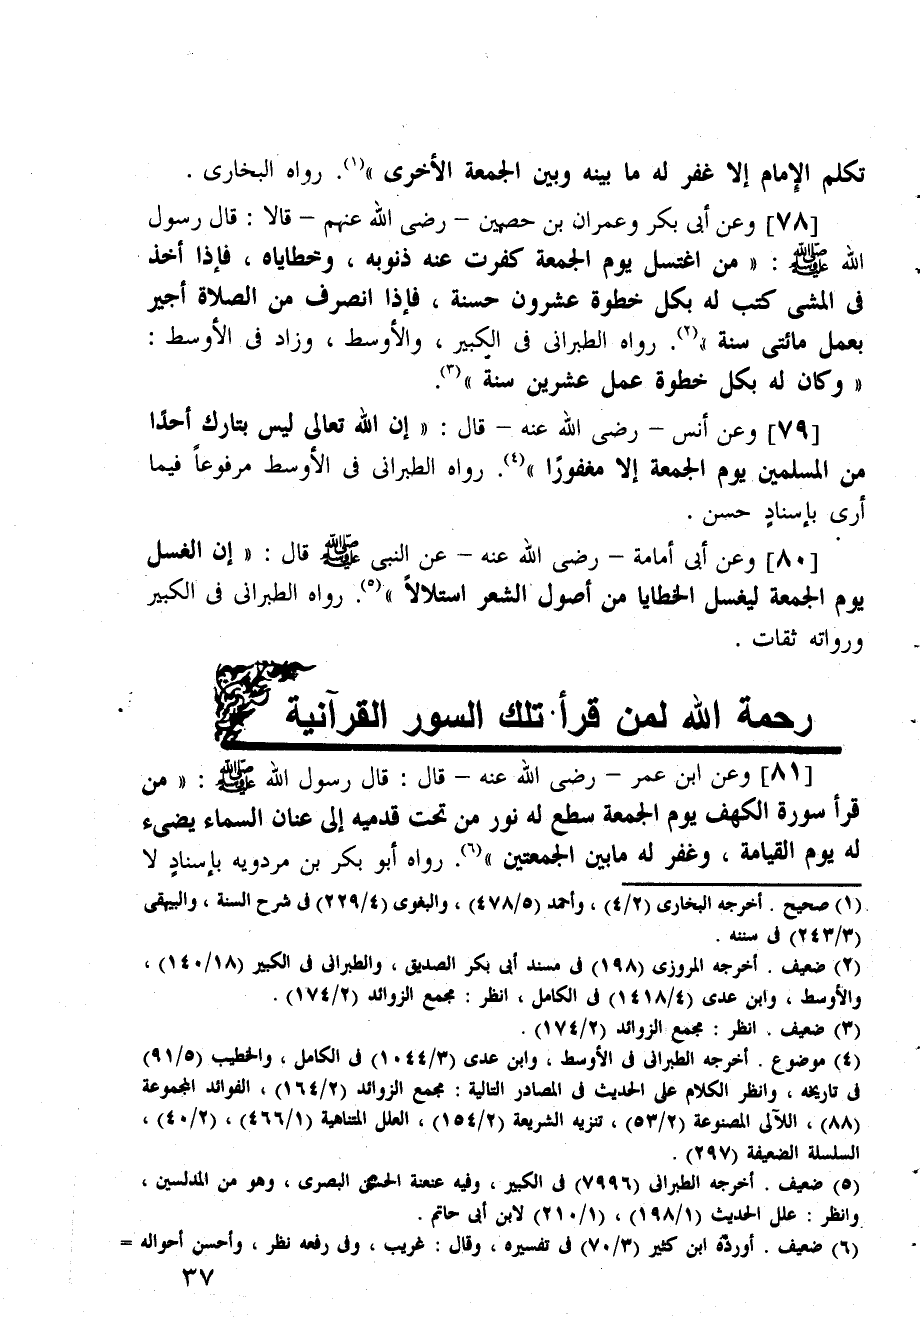 تكلم الإمام إلا غفر له ما بينه وبين الجمعة الأخرى »(١). رواه البخارى .
[٧٨] وعن أبى بكر وعمران بن حصين – رضى الله عنهم – قالا : قال رسول
الله ﷺ : « من اغتسل يوم الجمعة كفرت عنه ذنوبه ، وخطاياه ، فإذا أخذ
فى المشى كتب له بكل خطوة عشرون حسنة ، فإذا انصرف من الصلاة أجير
بعمل مائتى سنة »(٢). رواه الطبرانى فى الكبير ، والأوسط ، وزاد فى الأوسط :
« وكان له بكل خطوة عمل عشرين سنة »(٣).
[٧٩] وعن أنس – رضى الله عنه – قال : « إن الله تعالى ليس بتارك أحدًا
من المسلمين يوم الجمعة إلا مغفورًا »(٤). رواه الطبرانى فى الأوسط مرفوعاً فيما
أرى بإسنادٍ حسن .
[٨٠] وعن أبى أمامة – رضى الله عنه – عن النبى ﷺ قال : « إن الغسل
يوم الجمعة ليغسل الخطايا من أصول الشعر استلالاً »(٥). رواه الطبرانى فى الكبير
ورواته ثقات .
رحمة الله لمن قرأ تلك السور القرآنية
[٨١] وعن ابن عمر – رضى الله عنه – قال : قال رسول الله ﷺ : « من
قرأ سورة الكهف يوم الجمعة سطع له نور من تحت قدميه إلى عنان السماء يضىء
له يوم القيامة ، وغفر له مابين الجمعتين »(٦). رواه أبو بكر بن مردويه بإسنادٍ لا
(١) صحيح . أخرجه البخارى (٤/٢) ، وأحمد (٤٧٨/٥) ، والبغوى (٢٢٩/٤) فى شرح السنة ، والبيهقى
(٢٤٣/٣) فى سننه .
(٢) ضعيف . أخرجه المروزى (١٩٨) فى مسند أبى بكر الصديق ، والطبرانى فى الكبير (١٤٠/١٨) ،
والأوسط ، وابن عدى (١٤١٨/٤) فى الكامل ، انظر : مجمع الزوائد (١٧٤/٢) .
(٣) ضعيف . انظر : مجمع الزوائد (١٧٤/٢) .
(٤) موضوع . أخرجه الطبرانى فى الأوسط ، وابن عدى (١٠٤٤/٣) فى الكامل ، والخطيب (٩١/٥)
فى تاريخه ، وانظر الكلام على الحديث فى المصادر التالية : مجمع الزوائد (١٦٤/٢) ، الفوائد المجموعة
(٨٨) ، اللآلى المصنوعة (٥٣/٢) ، تنزيه الشريعة (١٥٤/٢) ، العلل المتناهية (٤٦٦/١) ، (٤٠/٢) ،
السلسلة الضعيفة (٢٩٧) .
(٥) ضعيف . أخرجه الطبرانى (٧٩٩٦) فى الكبير ، وفيه عنعنة الحسن البصرى ، وهو من المدلسين ،
وانظر : علل الحديث (١٩٨/١) ، (٢١٠/١) لابن أبى حاتم .
(٦) ضعيف . أورده ابن كثير (٧٠/٣) فى تفسيره ، وقال : غريب ، وفى رفعه نظر ، وأحسن أحواله =
٣٧